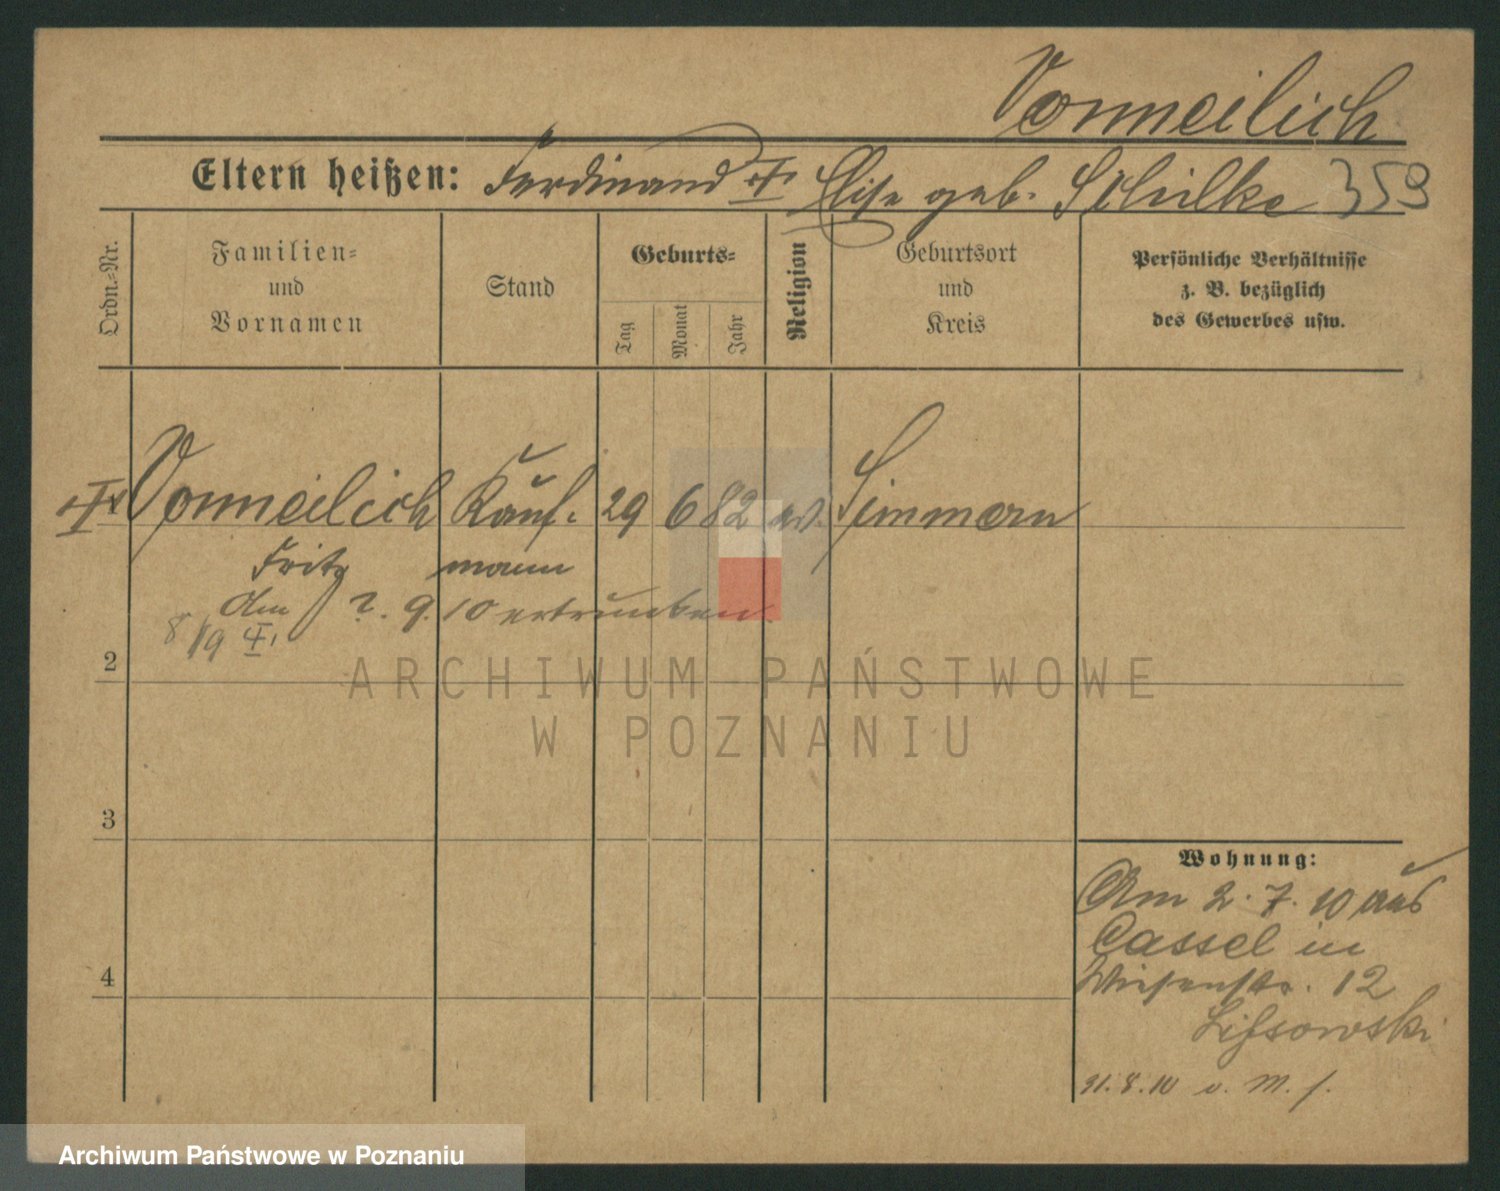 Vonneilich
Eltern heißen: Ferdinand † Elise geb. Schilke 359
Ordn.-Nr.
Familien-
und
Vornamen
Stand
Geburts-
Tag
Monat
Jahr
Religion
Geburtsort
und
Kreis
Persönliche Verhältnisse
z. B. bezüglich
des Gewerbes usw.
† Vonneilich Kauf- 29 6 82 ev. Simmern
Fritz mann
Am ?. 9. 10 ertrunken.
8/9 †
2
ARCHIWUM PAŃSTWOWE
W POZNANIU
3
4
Wohnung:
Am 2. 7. 10 aus
Cassel in
Wiesenstr. 12
Lissowski
31. 8. 10 v. M. f.
Archiwum Państwowe w Poznaniu